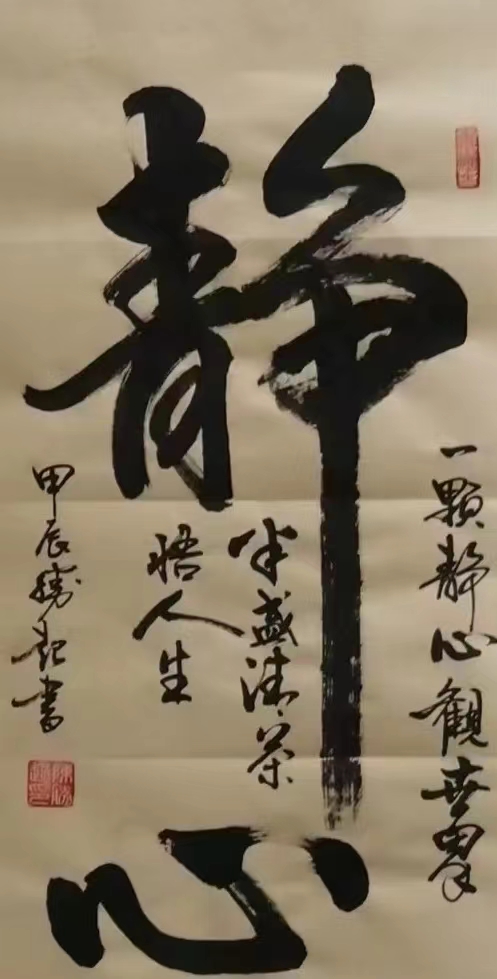 静心
一顆静心觀世界
半盏清茶
悟人生
甲辰勝超書